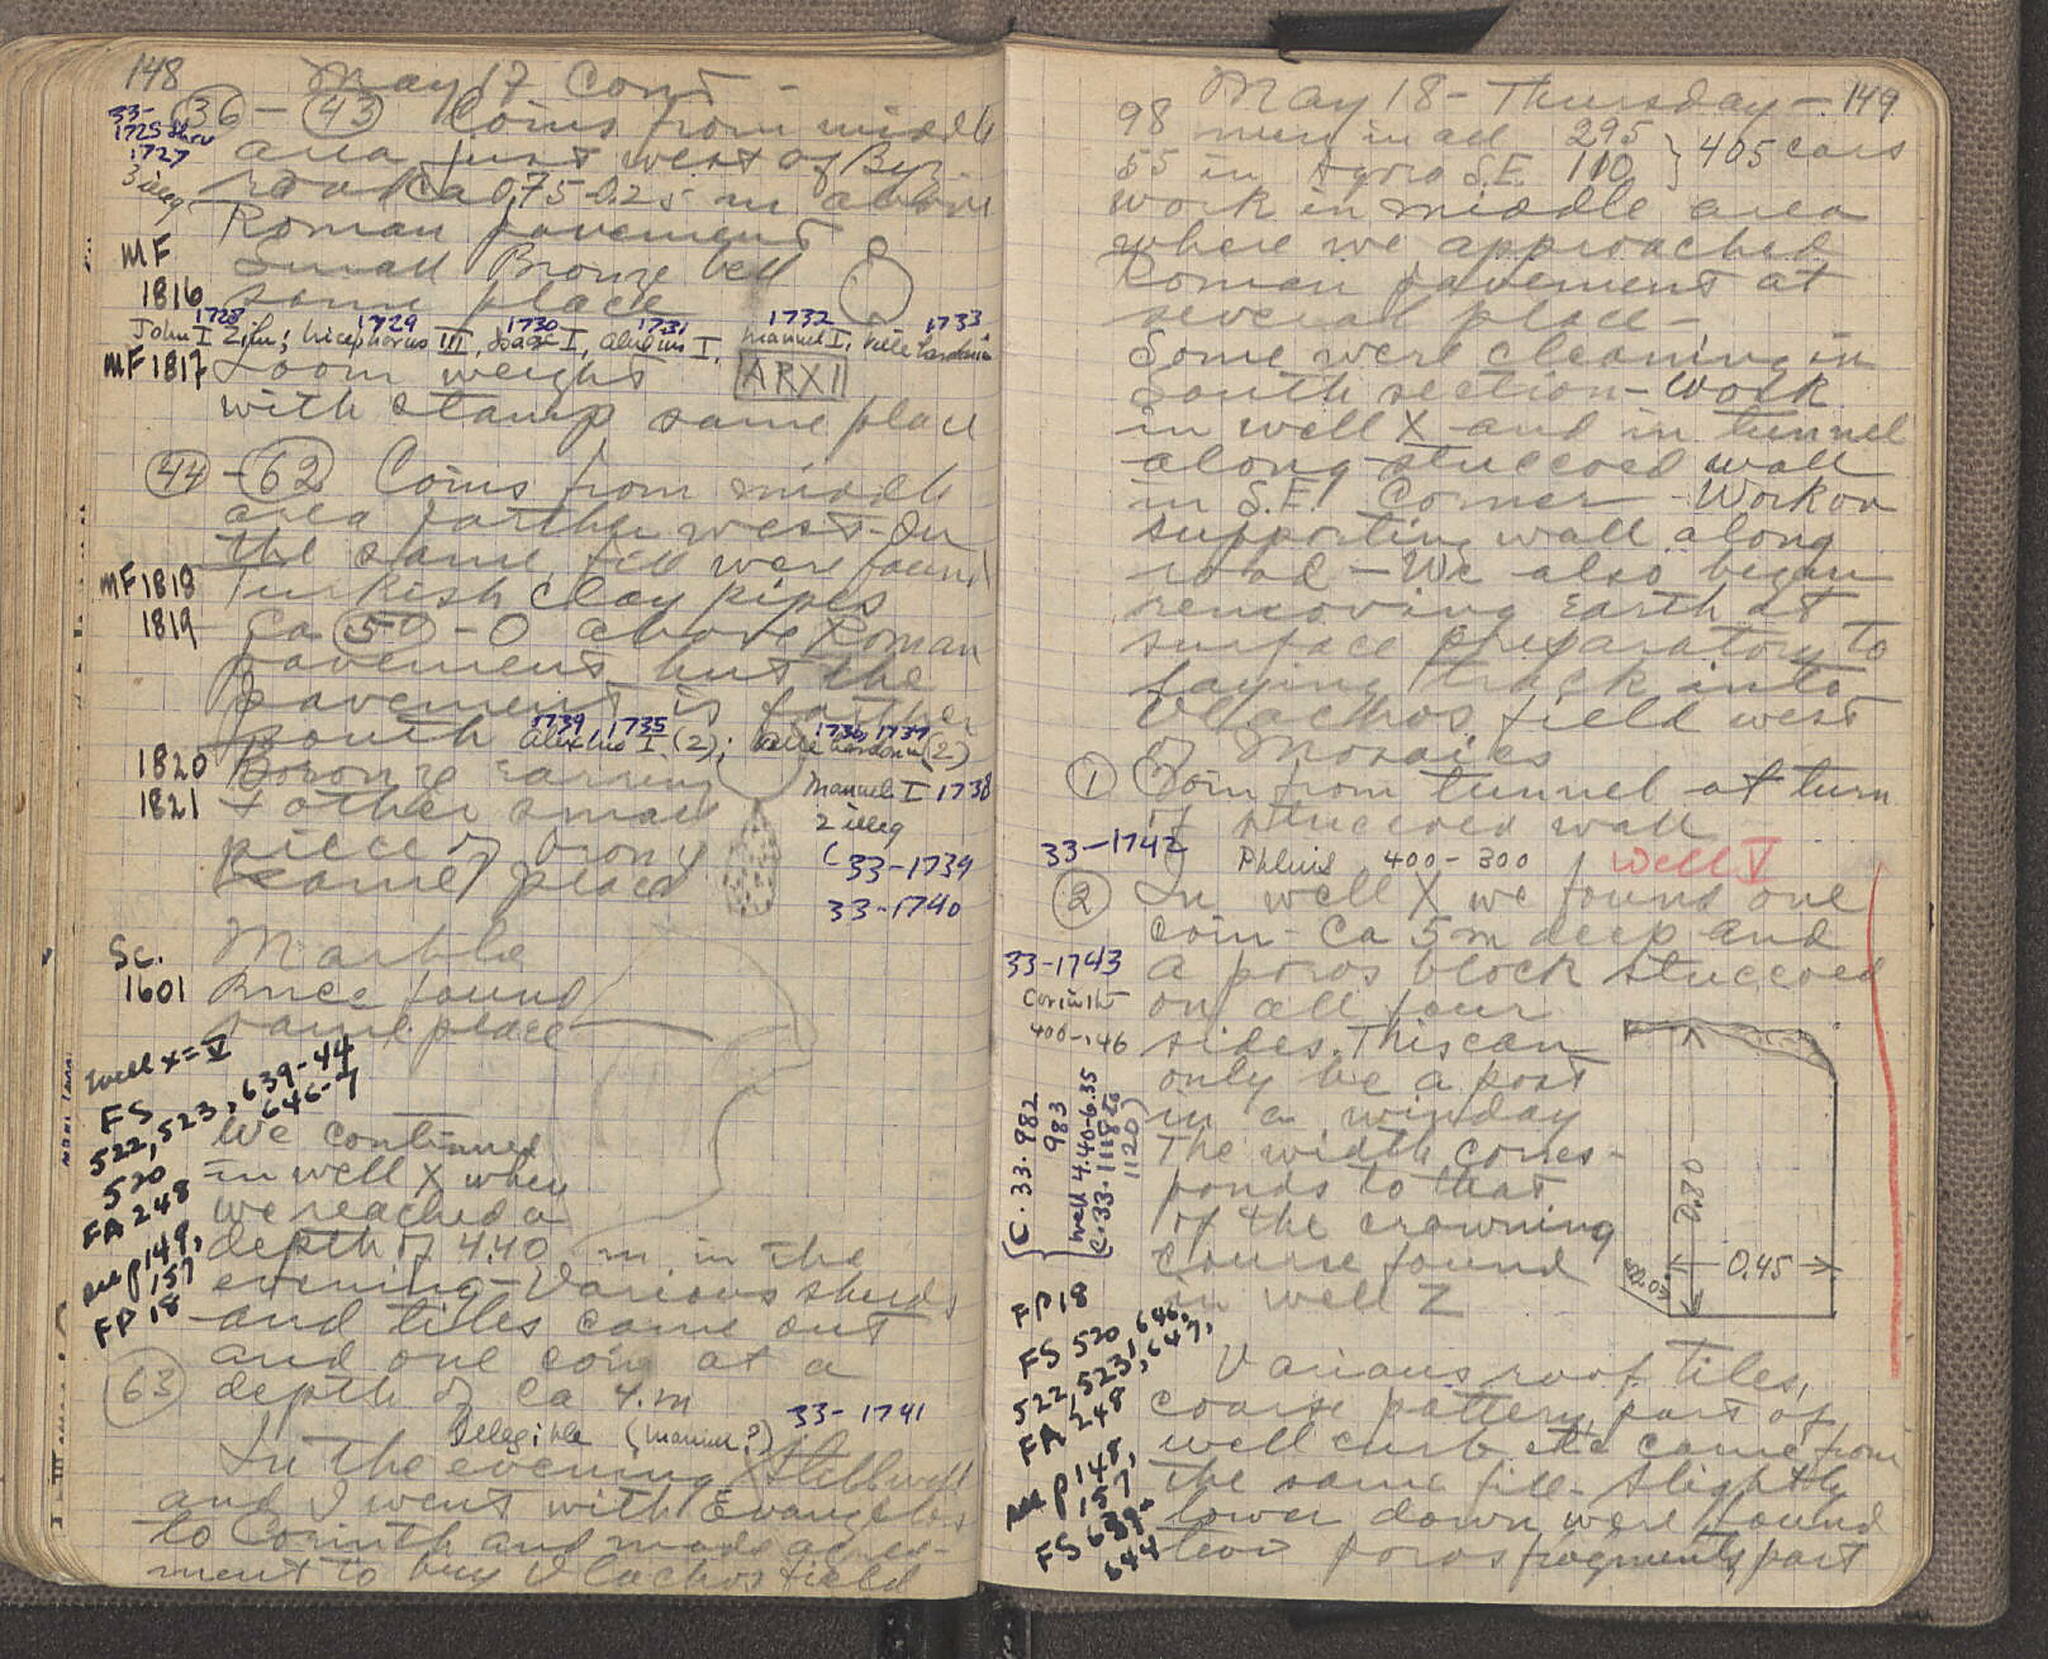 148 May 17 Cont -
33-1725 thru 1727
3 illeg
36 - 43 Coins from middle
area just west of Byz
road Ca 0.75-0.25 m above
Roman pavement
MF 1816
Small Bronze bell
same place
1728 1729 1730 1731 1732 1733
John I Zim; Nicephorus III, Isaac I, Alexius I, Manuel I, Ville Hardouin
MF 1817 Loom weight ARXII
with stamp same place
44 - 62 Coins from middle
area farther west. In
the same fill were found
MF 1818 Turkish Clay pipes
1819 Ca 50 - 0 above Roman
pavement but the
pavement is farther
south
1739 1735 1736, 1737
Alexius I (2); Ville Hardouin (2)
Manuel I 1738
2 illeg
33-1739
33-1740
1820 Bronze earring
1821 + other small
piece of bronze
same place
Sc. 1601
Marble
Piece found
same place
Well X = V
FS 522, 523, 639-44
646-7
520
FA 248
see p 149,
157
FP 18
We continued
in well X when
we reached a
depth of 4.40 m in the
evening - Various sherds
and tiles came out
and one coin at a
63 depth of Ca 4. m
Illegible (Manuel?) 33-1741
In the evening Stillwell
and I went with Evangelos
to Corinth and made agree-
ment to buy Vlachos field
May 18 - Thursday - 149
98 men in all 295 } 405 cars
55 in Agora S.E. 110
Work in middle area
where we approached
Roman pavement at
several place -
Some were cleaning in
South section - Work
in well X and in tunnel
along stuccoed wall
in S.E. Corner - Work on
supporting wall along
road - We also began
removing Earth at
surface preparatory to
laying track into
Vlachos field west
of Mosaics
1 Coin from tunnel at turn
of stuccoed wall
33-1742 Phlius 400-300 Well V
2 In well X we found one
coin - Ca 5 m deep and
33-1743
Corinth
400-146
a poros block stuccoed
on all four
sides. This can
only be a post
in a winday
The width corres-
ponds to that
of the crowning
course found
in well Z
0.80
0.45
C. 33. 982
983
Well 4.40-6.35
C. 33. 1118 to
1120
FP 18
FS 520, 646,
522, 523, 647,
FA 248
see p 148,
157,
FS 639-
644
Various roof tiles,
coarse pottery, part of
well curb etc came from
the same fill - Slightly
lower down were found
two poros fragments, part